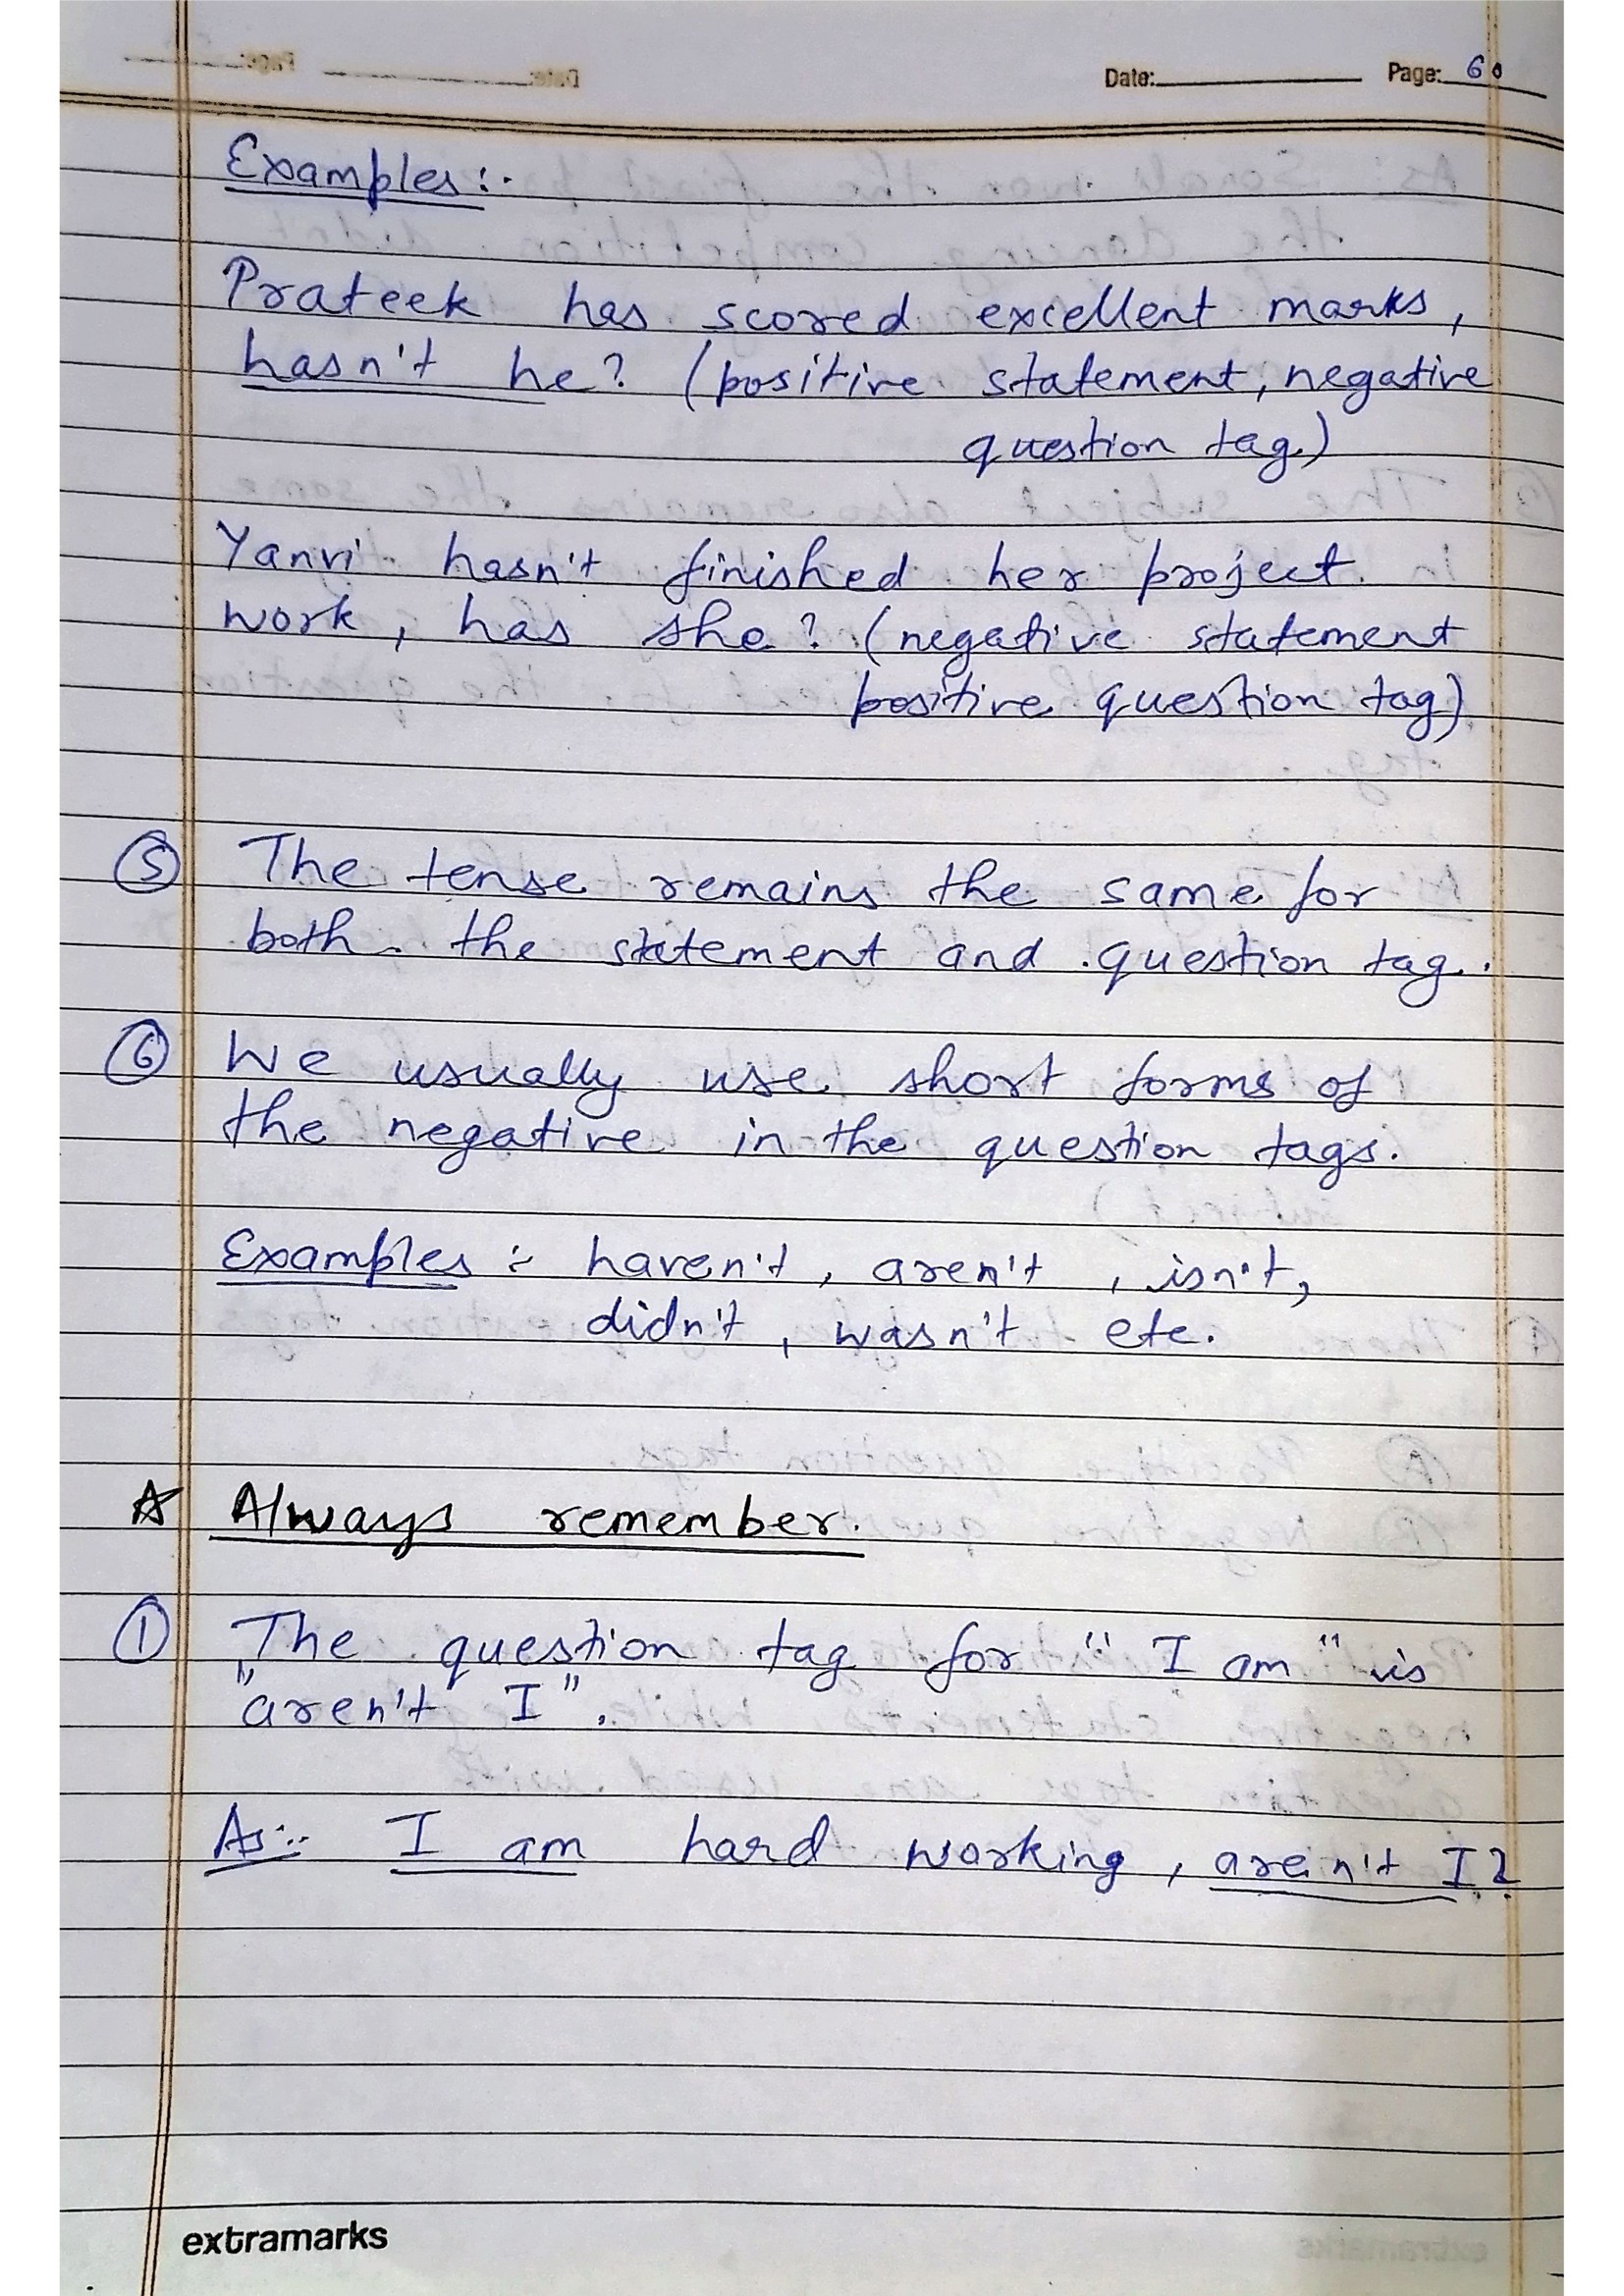 Date: Page: 60
Examples :-
Prateek has scored excellent marks,
hasn't he? (positive statement, negative
question tag.)
Yanvi hasn't finished her project
work, has she? (negative statement
positive question tag)
⑤ The tense remains the same for
both the statement and question tag.
⑥ We usually use short forms of
the negative in the question tags.
Examples :- haven't, aren't, isn't,
didn't, wasn't etc.
☆ Always remember.
① The question tag for "I am" is
"aren't I".
As:- I am hard working, aren't I?
extramarks